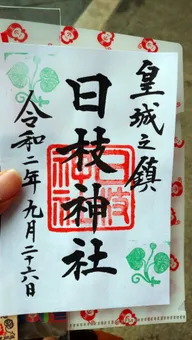 皇城之鎮
日枝神社
令和二年九月二十六日
日枝
神社